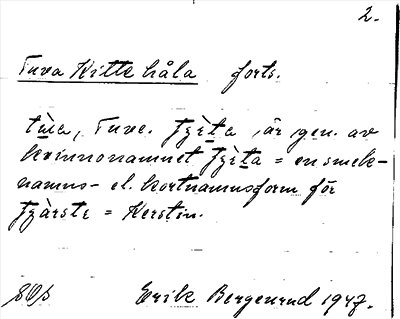 2.
Tuva Kitte håla forts.
tùa, Tuve. Tjìta, är gen. av
kvinnonamnet Tjìta = en smek-
namns- el. kortnamnsform för
Tjärste = Kerstin.
Erik Bergenrud 1947.